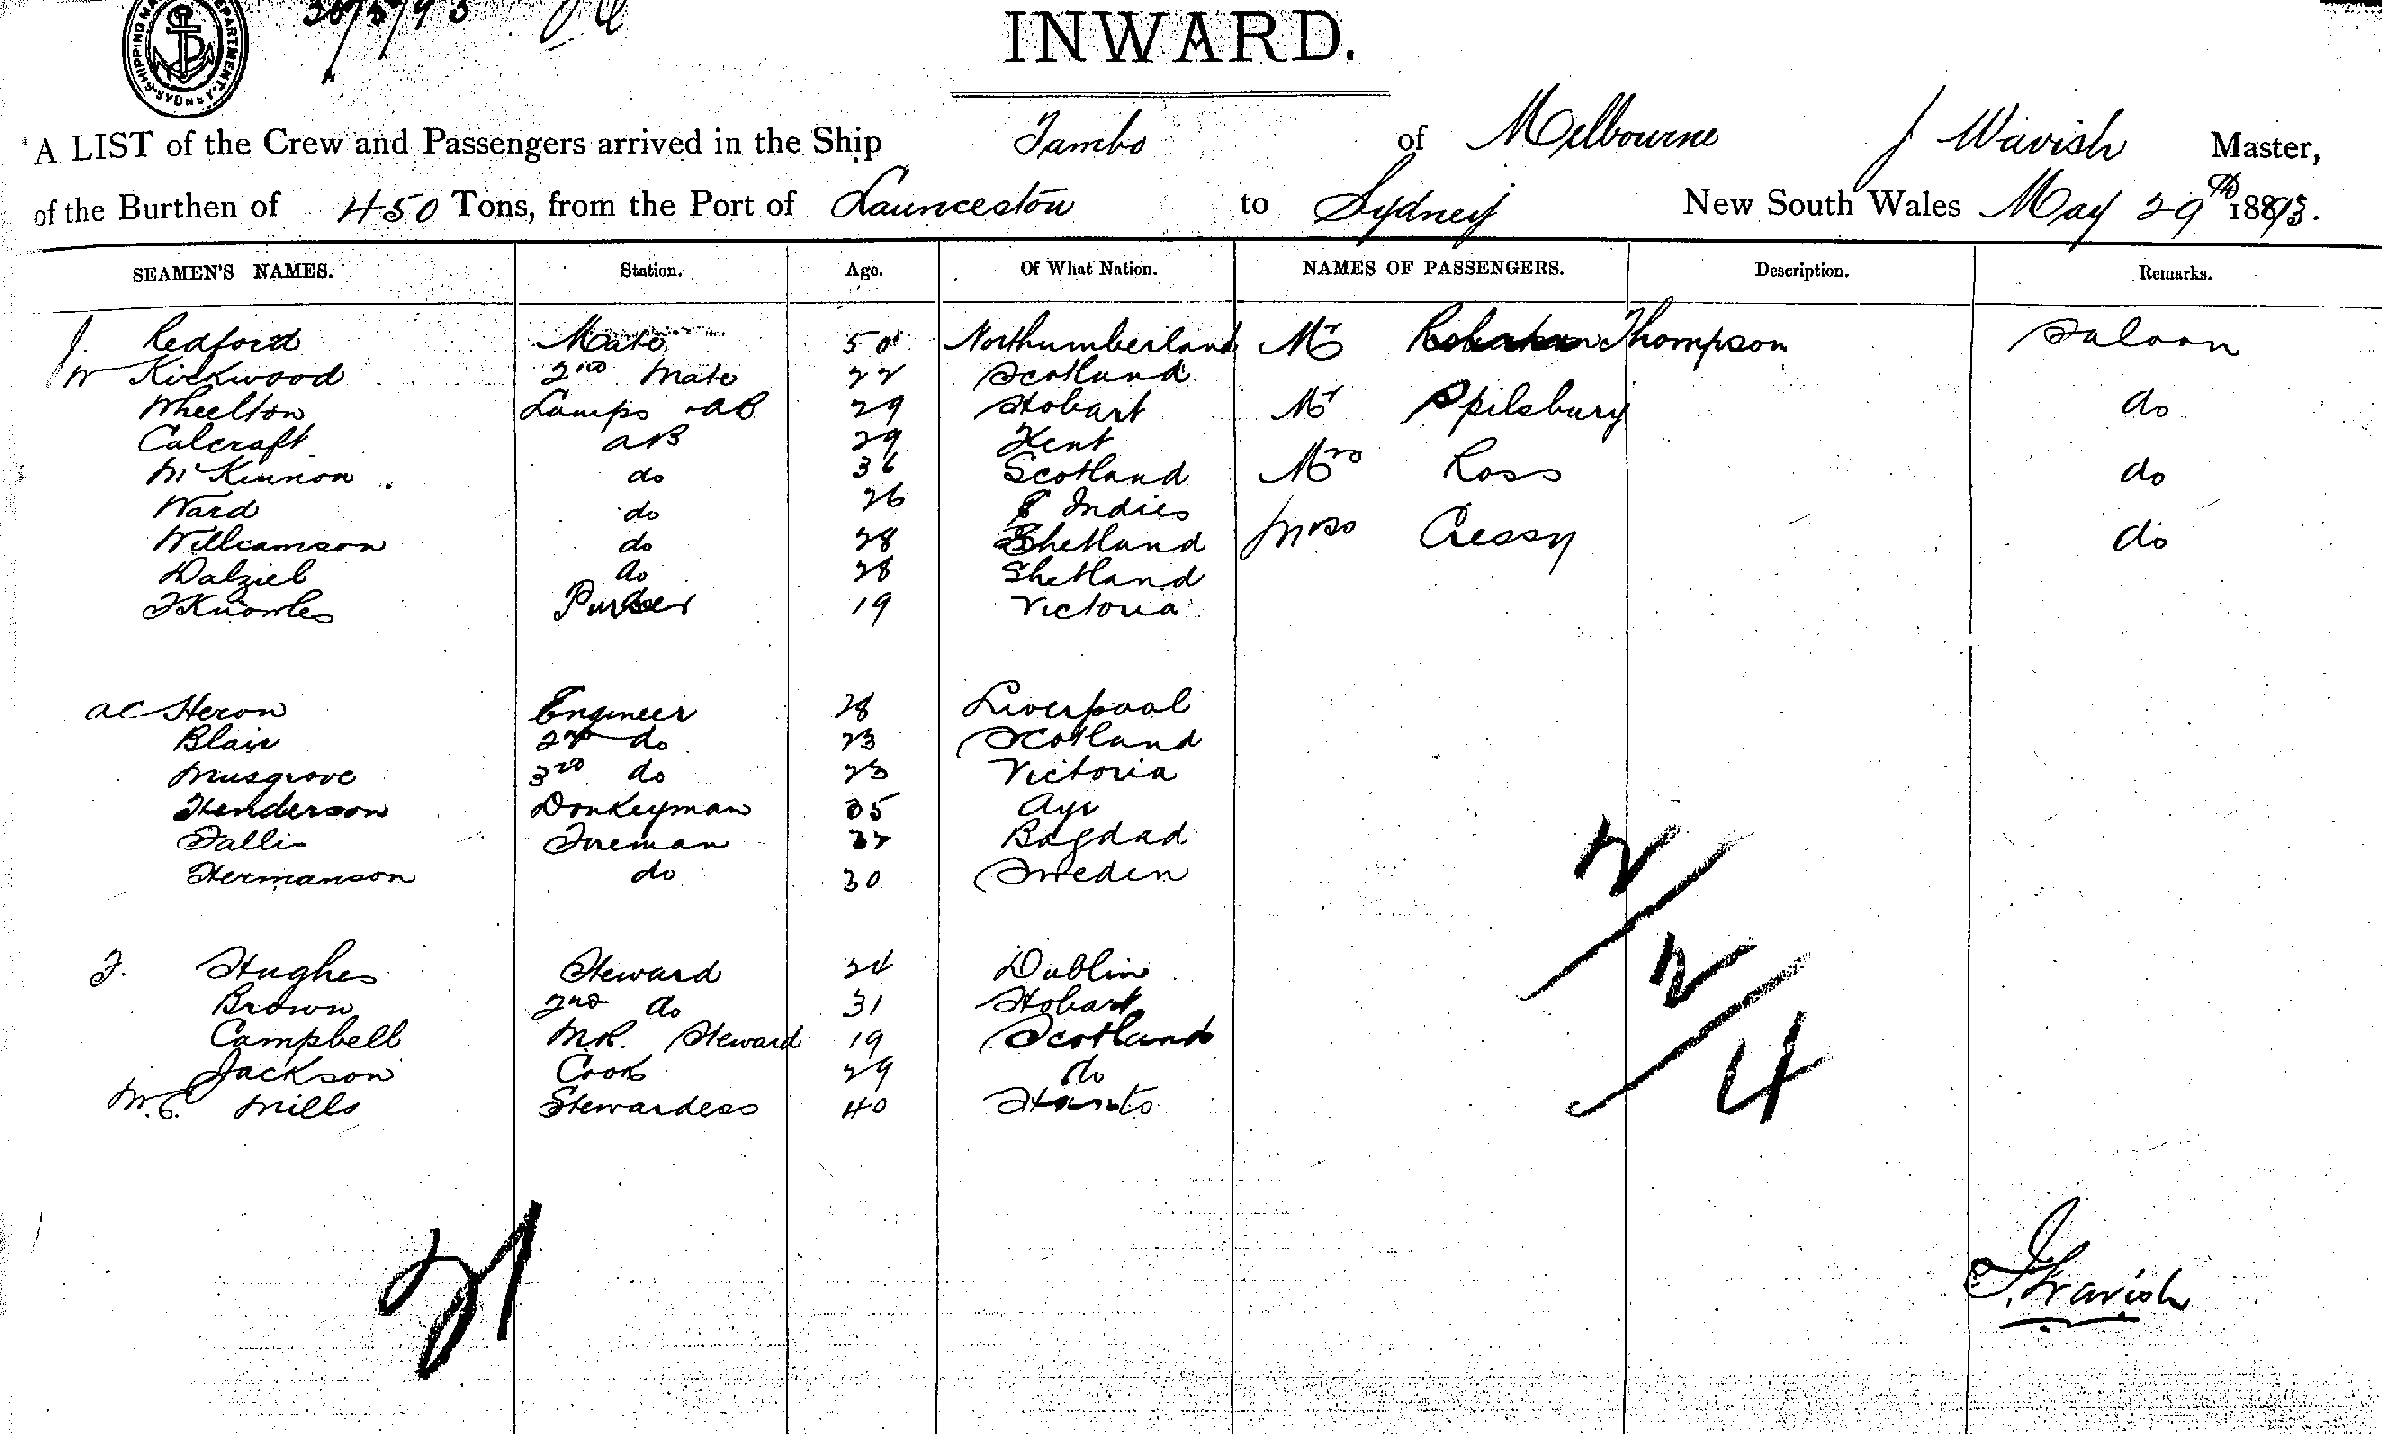 30/5/93
INWARD.
A LIST of the Crew and Passengers arrived in the Ship Tambo of Melbourne J Wavish Master,
of the Burthen of 450 Tons, from the Port of Launceston to Sydney New South Wales May 29th 1893.
SEAMEN'S NAMES. Station. Age. Of What Nation. NAMES OF PASSENGERS. Description. Remarks.
J. Redford Mate 50 Northumberland Mr Thompson Saloon
W Kirkwood 2nd Mate 22 Scotland
Wheelton Lamps AB 29 Hobart Mr Spilsbury do
Calcraft AB 29 Kent
McKinnon do 36 Scotland Mrs Ross do
Ward do 26 Indies
Williamson do 28 Shetland Miss Cressy do
Dalziel do 28 Shetland
F Knowles Purser 19 Victoria
AC Heron Engineer 28 Liverpool
Blair 2nd do 23 Scotland
Musgrove 3rd do 23 Victoria
Henderson Donkeyman 35 Ayr
Falli Fireman Bagdad
Hermanson do 30 Sweden
F. Hughes Steward 24 Dublin
Brown 2nd do 31 Hobart
Campbell M.R. Steward 19 Scotland
Jackson Cook 29 do
M.E. Mills Stewardess 40 Hants
2/2/4
21
J. Wavish